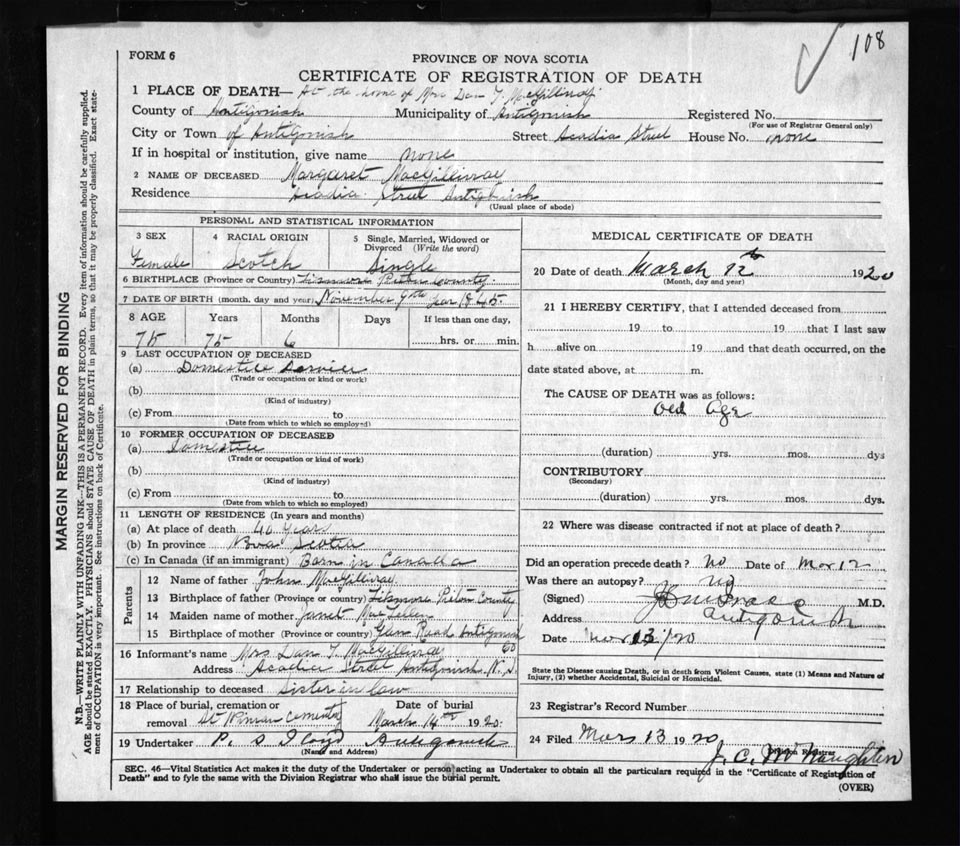 108
FORM 6
PROVINCE OF NOVA SCOTIA
CERTIFICATE OF REGISTRATION OF DEATH
1 PLACE OF DEATH— At the home of Mrs Dan
County of Antigonish Municipality of Antigonish Registered No.
(For use of Registrar General only)
City or Town of Antigonish Street Acadia Street House No. none
If in hospital or institution, give name none
2 NAME OF DECEASED Margaret MacGillivray
Residence Acadia Street Antigonish
(Usual place of abode)
MARGIN RESERVED FOR BINDING
N.B.—WRITE PLAINLY WITH UNFADING INK—THIS IS A PERMANENT RECORD. Every item of information should be carefully supplied.
AGE should be stated EXACTLY. PHYSICIANS should STATE CAUSE OF DEATH in plain terms, so that it may be properly classified. Exact state-
ment of OCCUPATION is very important. See instructions on back of Certificate.
PERSONAL AND STATISTICAL INFORMATION
3 SEX 4 RACIAL ORIGIN 5 Single, Married, Widowed or
Divorced (Write the word)
Female Scotch Single
6 BIRTHPLACE (Province or Country) Pictou County
7 DATE OF BIRTH (month, day and year) November 9th Year 1845
8 AGE Years Months Days If less than one day,
75 75 6 hrs. or min.
9 LAST OCCUPATION OF DECEASED
(a) Domestice Service
(Trade or occupation or kind or work)
(b)
(Kind of industry)
(c) From to
(Date from which to which so employed)
10 FORMER OCCUPATION OF DECEASED
(a) Domestice
(Trade or occupation or kind of work)
(b)
(Kind of industry)
(c) From to
(Date from which to which so employed)
11 LENGTH OF RESIDENCE (In years and months)
(a) At place of death 40 Years
(b) In province Nova Scotia
(c) In Canada (if an immigrant) Born in Canada
Parents
12 Name of father John MacGillivray
13 Birthplace of father (Province or country) Pictou County
14 Maiden name of mother Janet
15 Birthplace of mother (Province or country) Road Antigonish
16 Informant's name Mrs Dan MacGillivray
Address Acadia Street Antigonish N.S.
17 Relationship to deceased Sister in law
18 Place of burial, cremation or Date of burial
removal St Ninian Cemetery March 14th 1920
19 Undertaker P. S Floyd Antigonish
(Name and Address)
MEDICAL CERTIFICATE OF DEATH
20 Date of death March 12th 1920
(Month, day and year)
21 I HEREBY CERTIFY, that I attended deceased from
19 to 19 that I last saw
h alive on 19 and that death occurred, on the
date stated above, at m.
The CAUSE OF DEATH was as follows:
Old Age
(duration) yrs. mos. dys
CONTRIBUTORY
(Secondary)
(duration) yrs. mos. dys.
22 Where was disease contracted if not at place of death?
Did an operation precede death? No Date of Mar 12
Was there an autopsy? No
(Signed) M.D.
Address Antigonish
Date Mar 13/20
State the Disease causing Death, or in death from Violent Causes, state (1) Means and Nature of
Injury, (2) whether Accidental, Suicidal or Homicidal.
23 Registrar's Record Number
24 Filed Mars 13 1920
Division Registrar
J. C. McNaughton
SEC. 46—Vital Statistics Act makes it the duty of the Undertaker or person acting as Undertaker to obtain all the particulars required in the "Certificate of Registration of
Death" and to fyle the same with the Division Registrar who shall issue the burial permit.
(OVER)